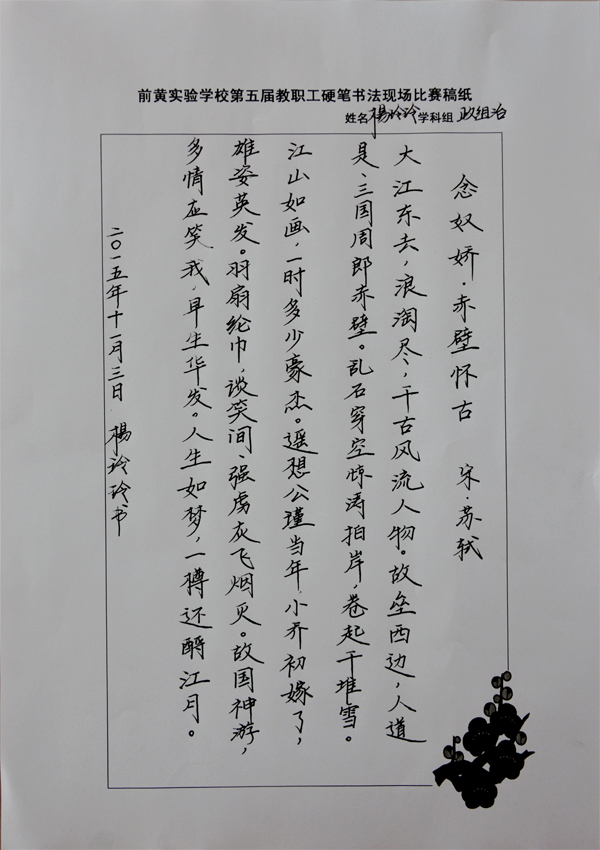 前黄实验学校第五届教职工硬笔书法现场比赛稿纸
姓名 楊玲玲 学科组 政组治
念奴娇·赤壁怀古 宋·苏轼
大江东去，浪淘尽，千古风流人物。故垒西边，人道
是、三国周郎赤壁。乱石穿空惊涛拍岸，卷起千堆雪。
江山如画，一时多少豪杰。遥想公瑾当年，小乔初嫁了，
雄姿英发。羽扇纶巾，谈笑间、强虏灰飞烟灭。故国神游，
多情应笑我，早生华发。人生如梦，一樽还酹江月。
二〇一五年十一月三日 楊玲玲书